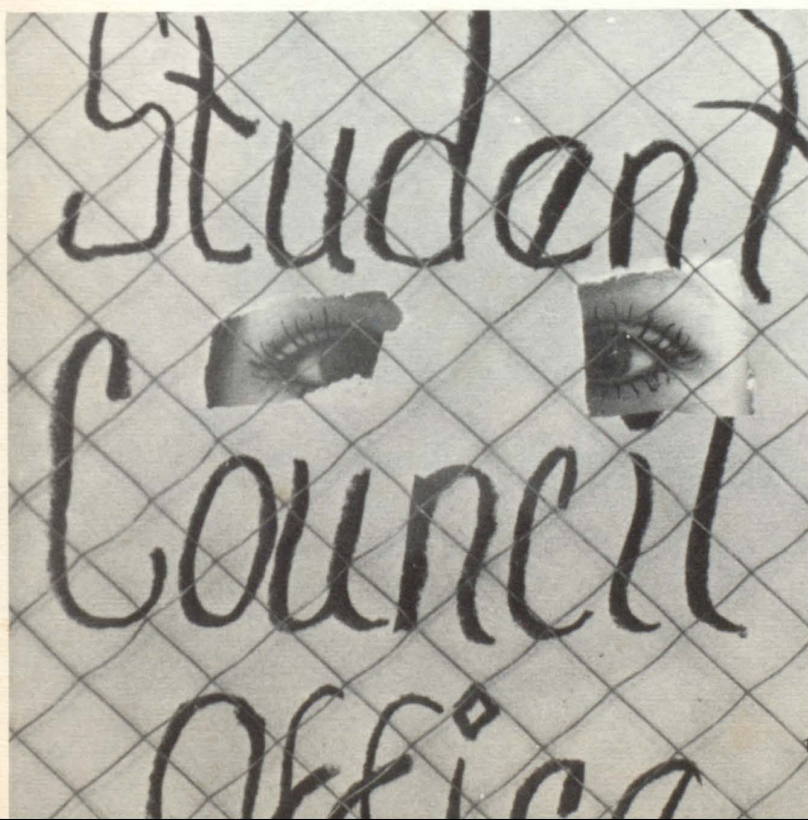 Student
Council
Office